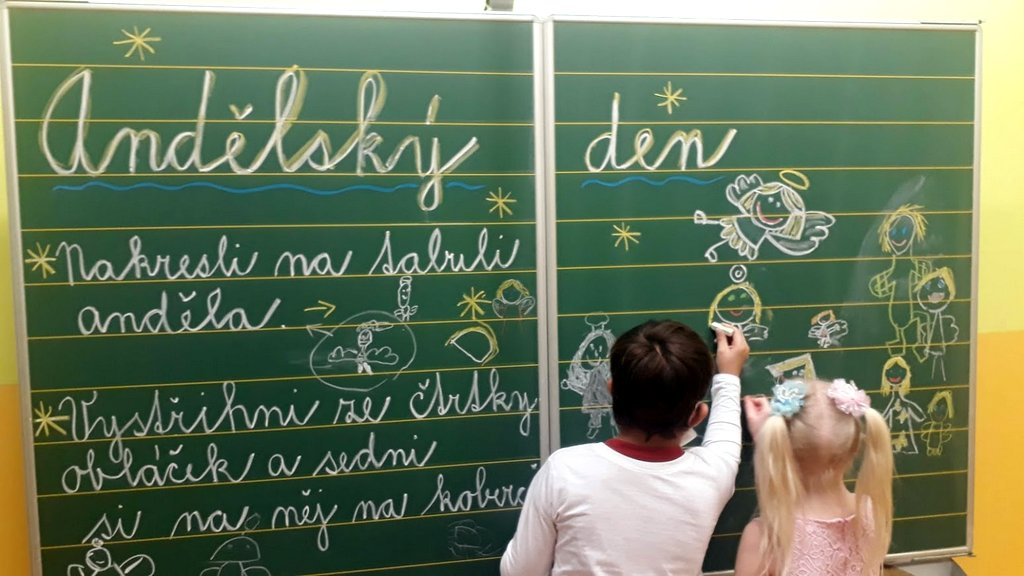 Andělský den
Nakresli na tabuli
anděla.
Vystřihni ze čtrtky
obláček a sedni
si na něj na koberc